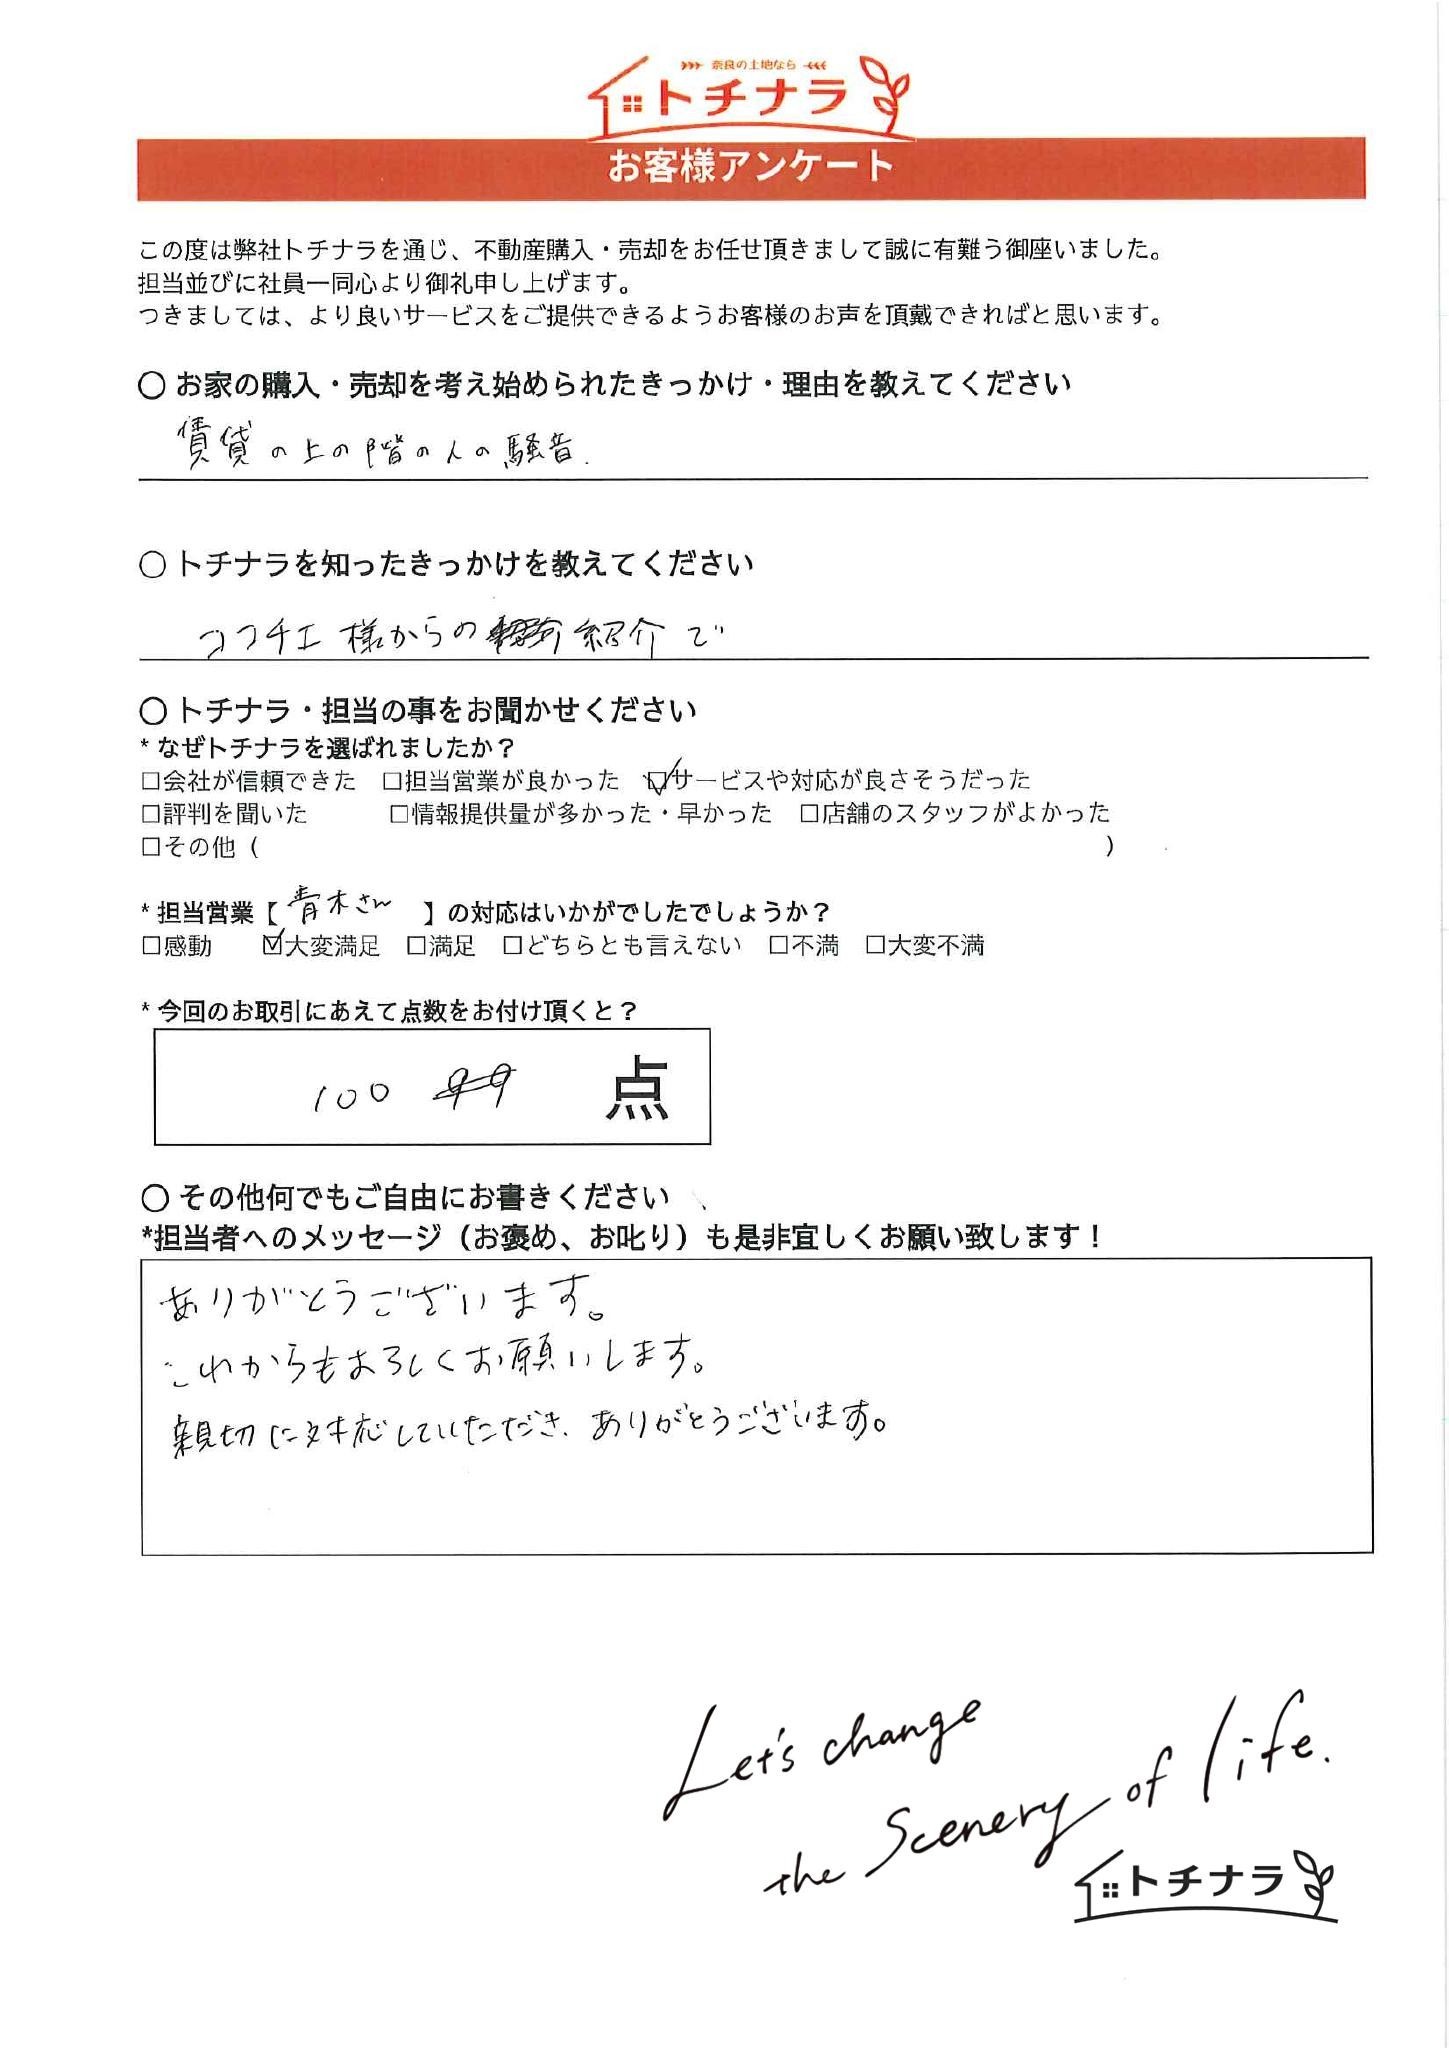 奈良の土地なら
トチナラ
お客様アンケート
この度は弊社トチナラを通じ、不動産購入・売却をお任せ頂きまして誠に有難う御座いました。
担当並びに社員一同心より御礼申し上げます。
つきましては、より良いサービスをご提供できるようお客様のお声を頂戴できればと思います。
○ お家の購入・売却を考え始められたきっかけ・理由を教えてください
賃貸の上の階の人の騒音.
○ トチナラを知ったきっかけを教えてください
ココチエ様からの紹介で
○ トチナラ・担当の事をお聞かせください
* なぜトチナラを選ばれましたか？
□会社が信頼できた □担当営業が良かった ☑サービスや対応が良さそうだった
□評判を聞いた □情報提供量が多かった・早かった □店舗のスタッフがよかった
□その他（ ）
* 担当営業【 青木さん 】の対応はいかがでしたでしょうか？
□感動 ☑大変満足 □満足 □どちらとも言えない □不満 □大変不満
* 今回のお取引にあえて点数をお付け頂くと？
100 99 点
○ その他何でもご自由にお書きください
*担当者へのメッセージ（お褒め、お叱り）も是非宜しくお願い致します！
ありがとうございます。
これからもよろしくお願いします。
親切に対応していただき、ありがとうございます。
Let's change
the Scenery of life.
トチナラ